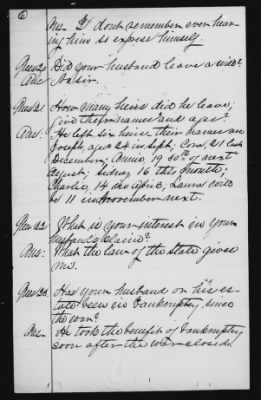 6
Ans. I dont remember ever hear-
ing him so express himself.
Ques 20 Did your husband leave a will?
Ans No sir.
Ques 21 How many heirs did he leave,
Give their names and ages?
Ans. He left six heirs their names are
Joseph, aged 24 in Sept; Cora, 21 last
December; Annie, 19 30th of next
August; Sidney 16 this month;
Charlie, 14 in April, Laura will
be 11 in November next.
Ques 22 What is your interest in your
husband's Claim?
Ans: What the law of the State gives
me.
Ques 23 Has your husband or his es-
tate been in bankruptcy, since
the war?
Ans He took the benefit of bankruptcy
soon after the war closed.